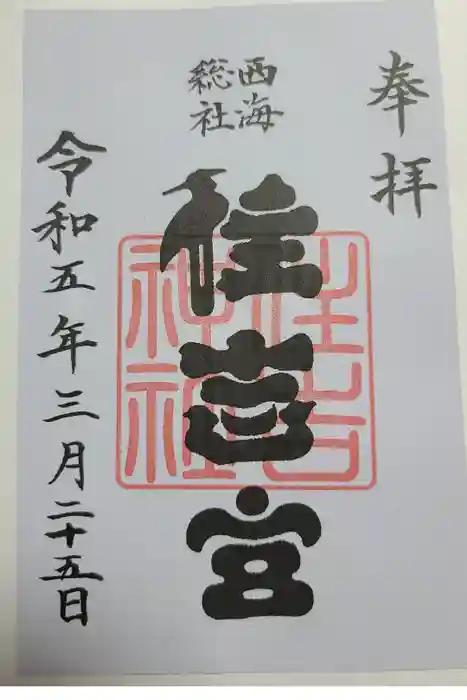 奉拝
西海
総社
住吉宮
住吉
神社
令和五年三月二十五日